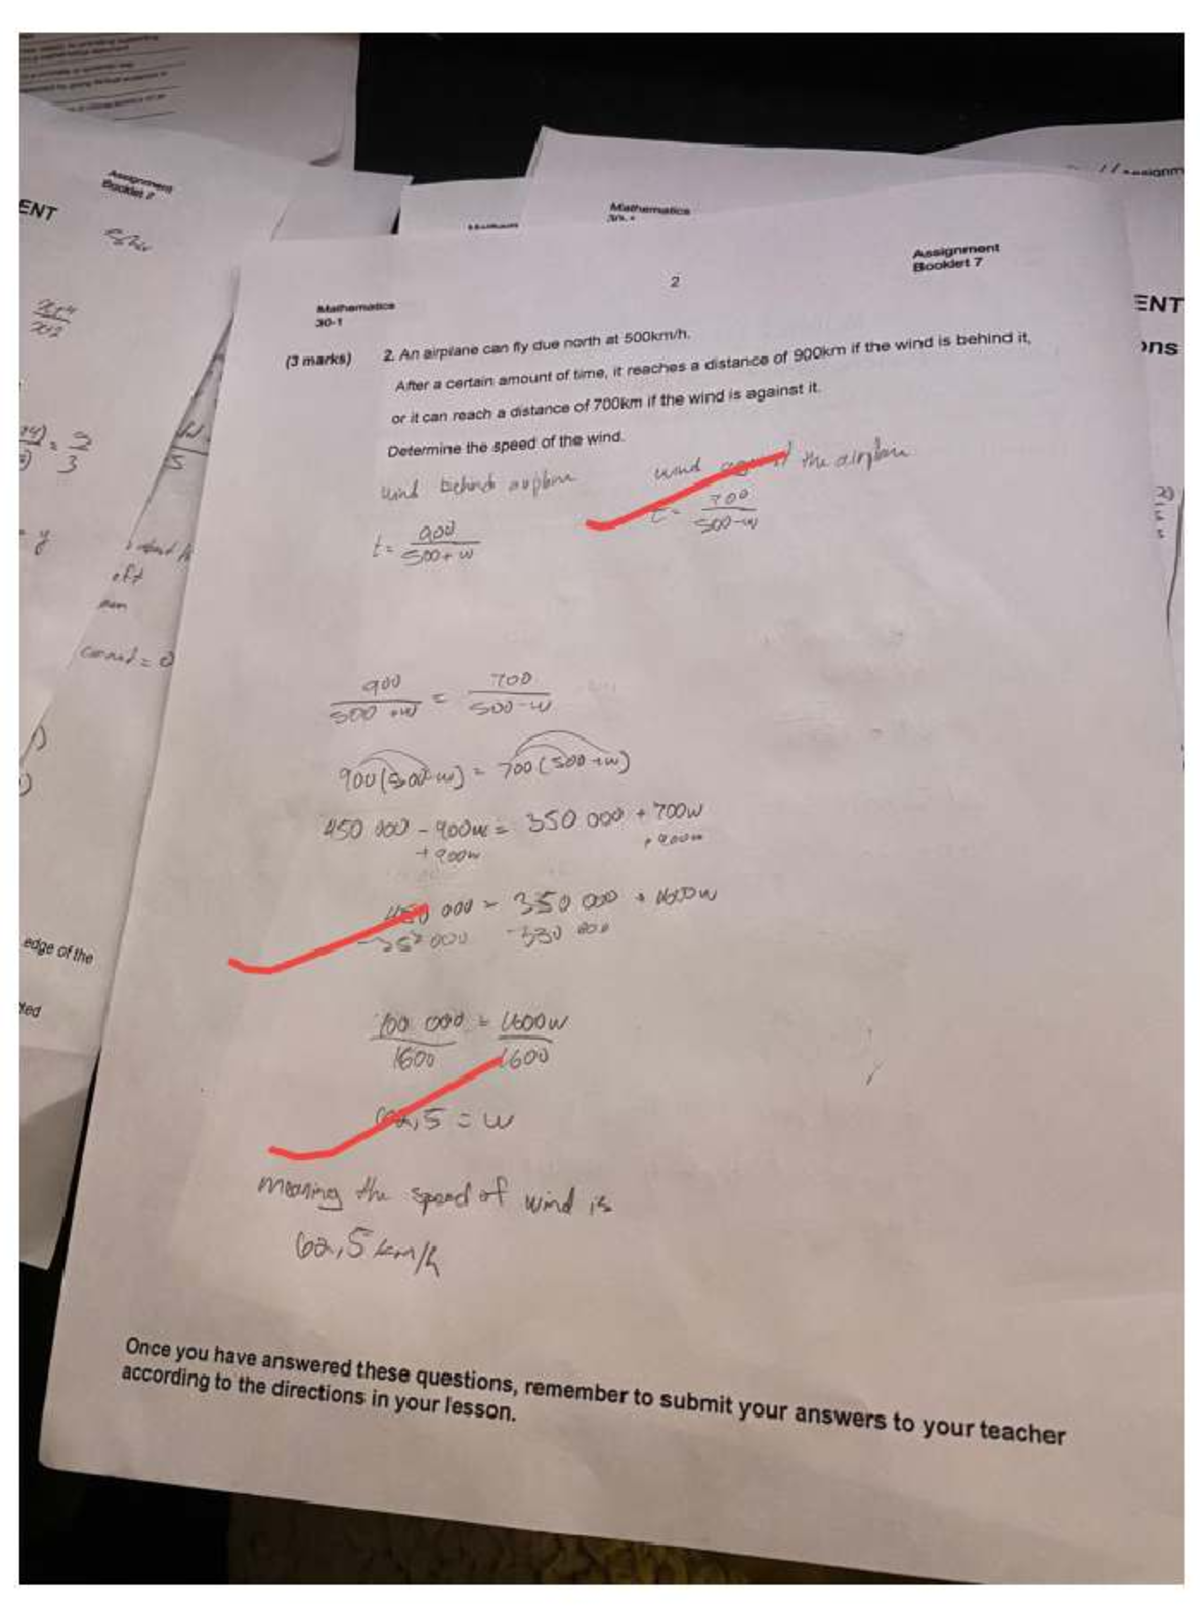 Assignment
Booklet 7
ENT
x+4
x+2
2
3
= y
count = 0
edge of the
Mathematics
Assignment
Booklet 7
2
Mathematics
30-1
ENT
ons
(3 marks) 2. An airplane can fly due north at 500km/h.
After a certain amount of time, it reaches a distance of 900km if the wind is behind it,
or it can reach a distance of 700km if the wind is against it.
Determine the speed of the wind.
wind behind airplane
wind against the airplane
t = 900
500 + w
t = 700
500 - w
900 = 700
500 + w 500 - w
900(500-w) = 700(500+w)
450 000 - 900w = 350 000 + 700w
+ 900w + 900w
450 000 = 350 000 + 1600w
-350 000 -350 000
100 000 = 1600w
1600 1600
62,5 = w
meaning the speed of wind is
62,5 km/h
Once you have answered these questions, remember to submit your answers to your teacher
according to the directions in your lesson.